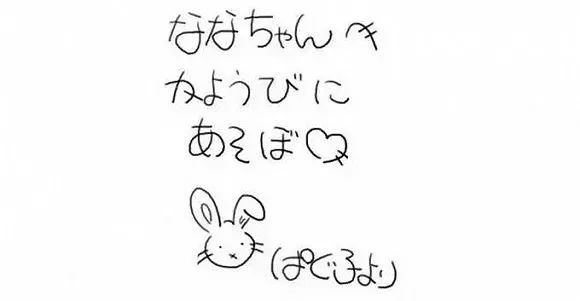 ななちゃんへ
かようびに
あそぼ♡
ぱど子より